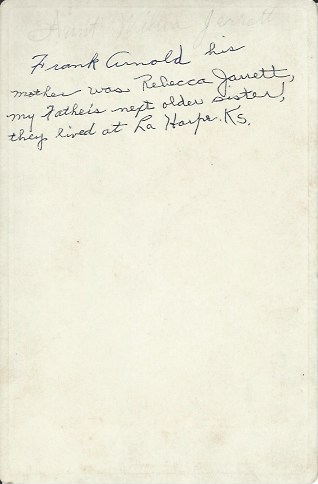 Frank Arnold his
mother was Rebecca Jarrett,
my Father's next older sister,
they lived at La Harpe. Ks.